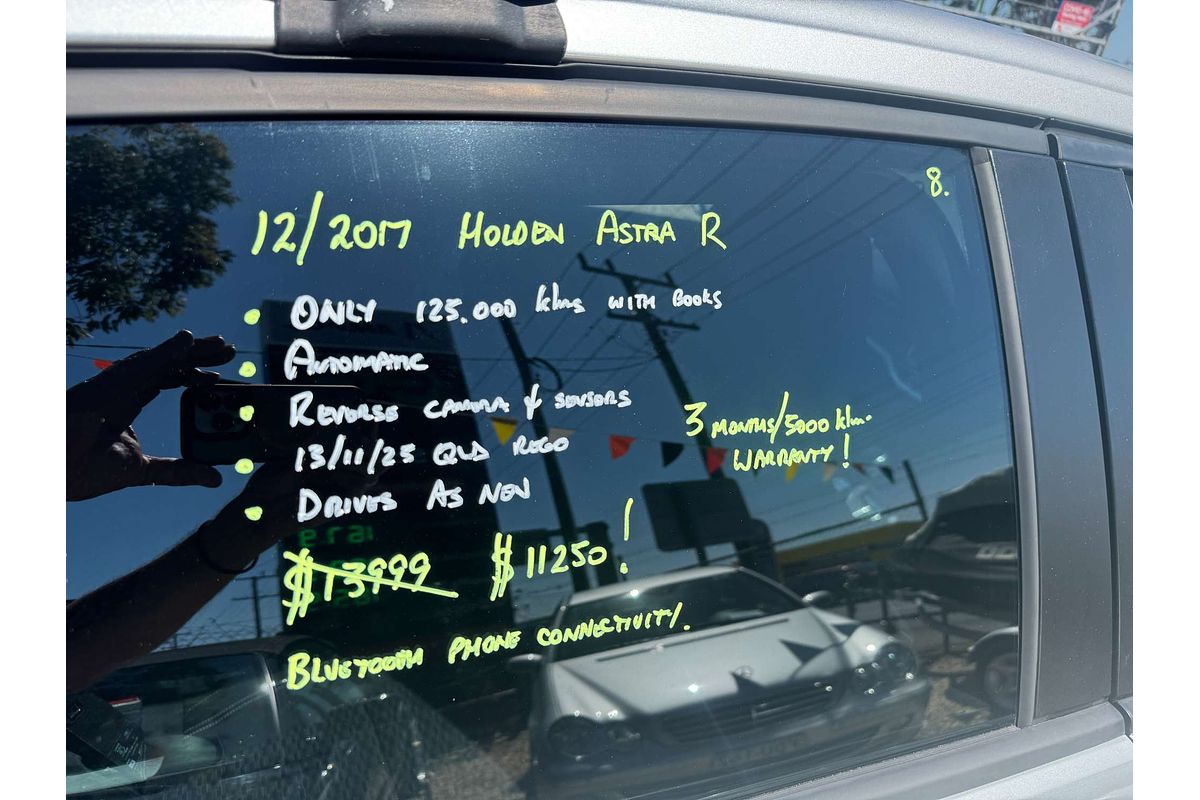 8.
12/2017 HOLDEN ASTRA R
• ONLY 125.000 klms WITH BOOKS
• AUTOMATIC
• REVERSE CAMERA & SENSORS
• 13/11/25 QLD REGO
• DRIVES AS NEW
3 MONTHS/5000 klm.
WARRANTY!
$13999 $11250!
BLUETOOTH PHONE CONNECTIVITY.